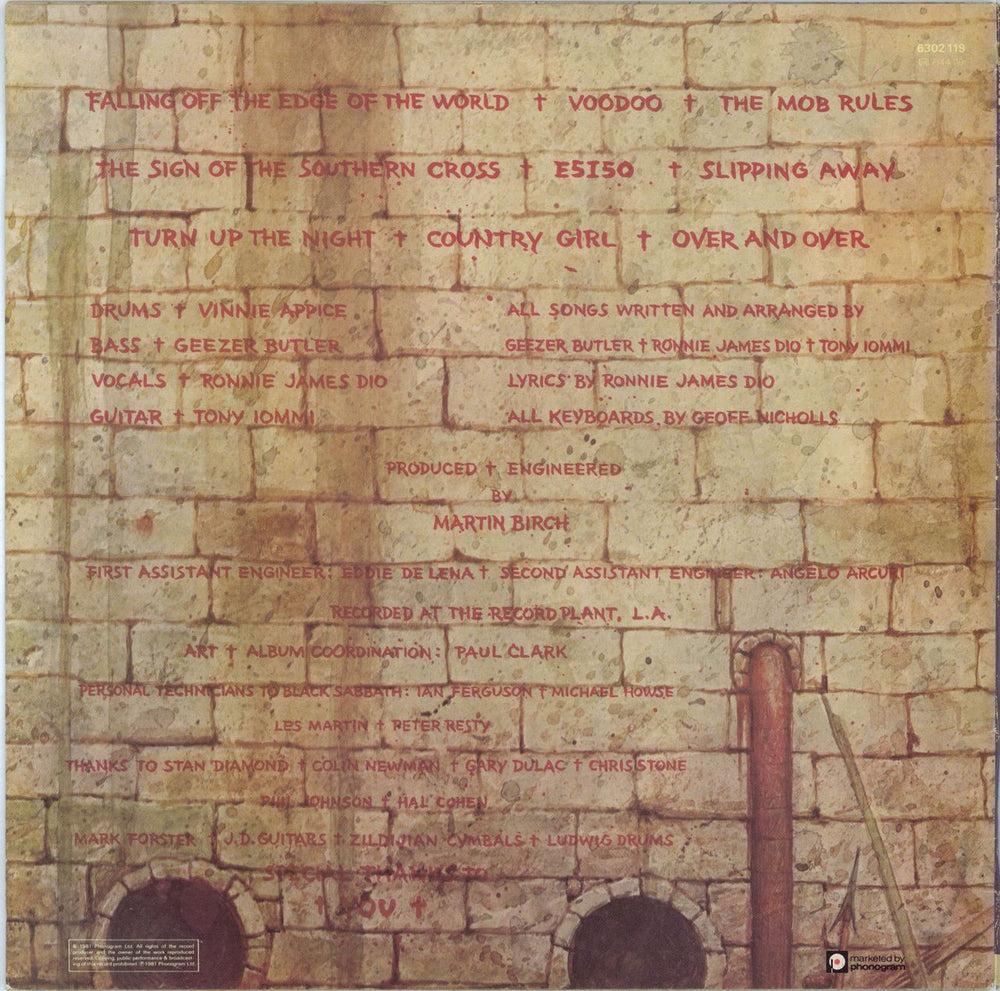 6302 119
FALLING OFF THE EDGE OF THE WORLD † VOODOO † THE MOB RULES
THE SIGN OF THE SOUTHERN CROSS † E5150 † SLIPPING AWAY
TURN UP THE NIGHT † COUNTRY GIRL † OVER AND OVER
DRUMS † VINNIE APPICE
BASS † GEEZER BUTLER
VOCALS † RONNIE JAMES DIO
GUITAR † TONY IOMMI
ALL SONGS WRITTEN AND ARRANGED BY
GEEZER BUTLER † RONNIE JAMES DIO † TONY IOMMI
LYRICS BY RONNIE JAMES DIO
ALL KEYBOARDS BY GEOFF NICHOLLS
PRODUCED † ENGINEERED
BY
MARTIN BIRCH
FIRST ASSISTANT ENGINEER: EDDIE DE LENA † SECOND ASSISTANT ENGINEER: ANGELO ARCURI
RECORDED AT THE RECORD PLANT, L.A.
ART † ALBUM COORDINATION: PAUL CLARK
PERSONAL TECHNICIANS TO BLACK SABBATH: IAN FERGUSON † MICHAEL HOWSE
LES MARTIN † PETER RESTY
THANKS TO STAN DIAMOND † COLIN NEWMAN † GARY DULAC † CHRIS STONE
PHIL JOHNSON † HAL COHEN
MARK FORSTER † J.D. GUITARS † ZILDIJIAN CYMBALS † LUDWIG DRUMS
SPECIAL THANKS TO
† YOU †
℗ 1981 Phonogram Ltd. All rights of the record
producer and the owner of the work reproduced
reserved. Copying, public performance & broadcast-
ing of this record prohibited. ℗ 1981 Phonogram Ltd.
marketed by
phonogram